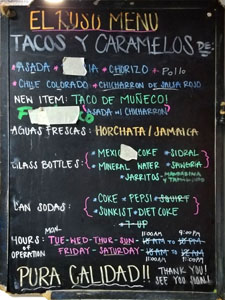 EL RUSO MENU
TACOS Y CARAMELOS DE:
*ASADA * CHORIZO * Pollo
*CHILE COLORADO * CHICHARRON DE SALSA ROJO
NEW ITEM: TACO DE MUÑECO!
ASADA CHICHARRON
AGUAS FRESCAS: HORCHATA / JAMAICA
GLASS BOTTLES:
* COKE * SIDRAL
* MINERAL WATER * SANGRIA
* JARRITOS - MANDARINA
CAN SODAS: * COKE * PEPSI * SQUIRT
* SUNKIST * DIET COKE
* 7-UP
MON-
HOURS OF OPERATION
TUE-WED-THUR-SUN-
FRIDAY - SATURDAY-
PURA CALIDAD!!
THANK YOU!
SEE YOU SOON!